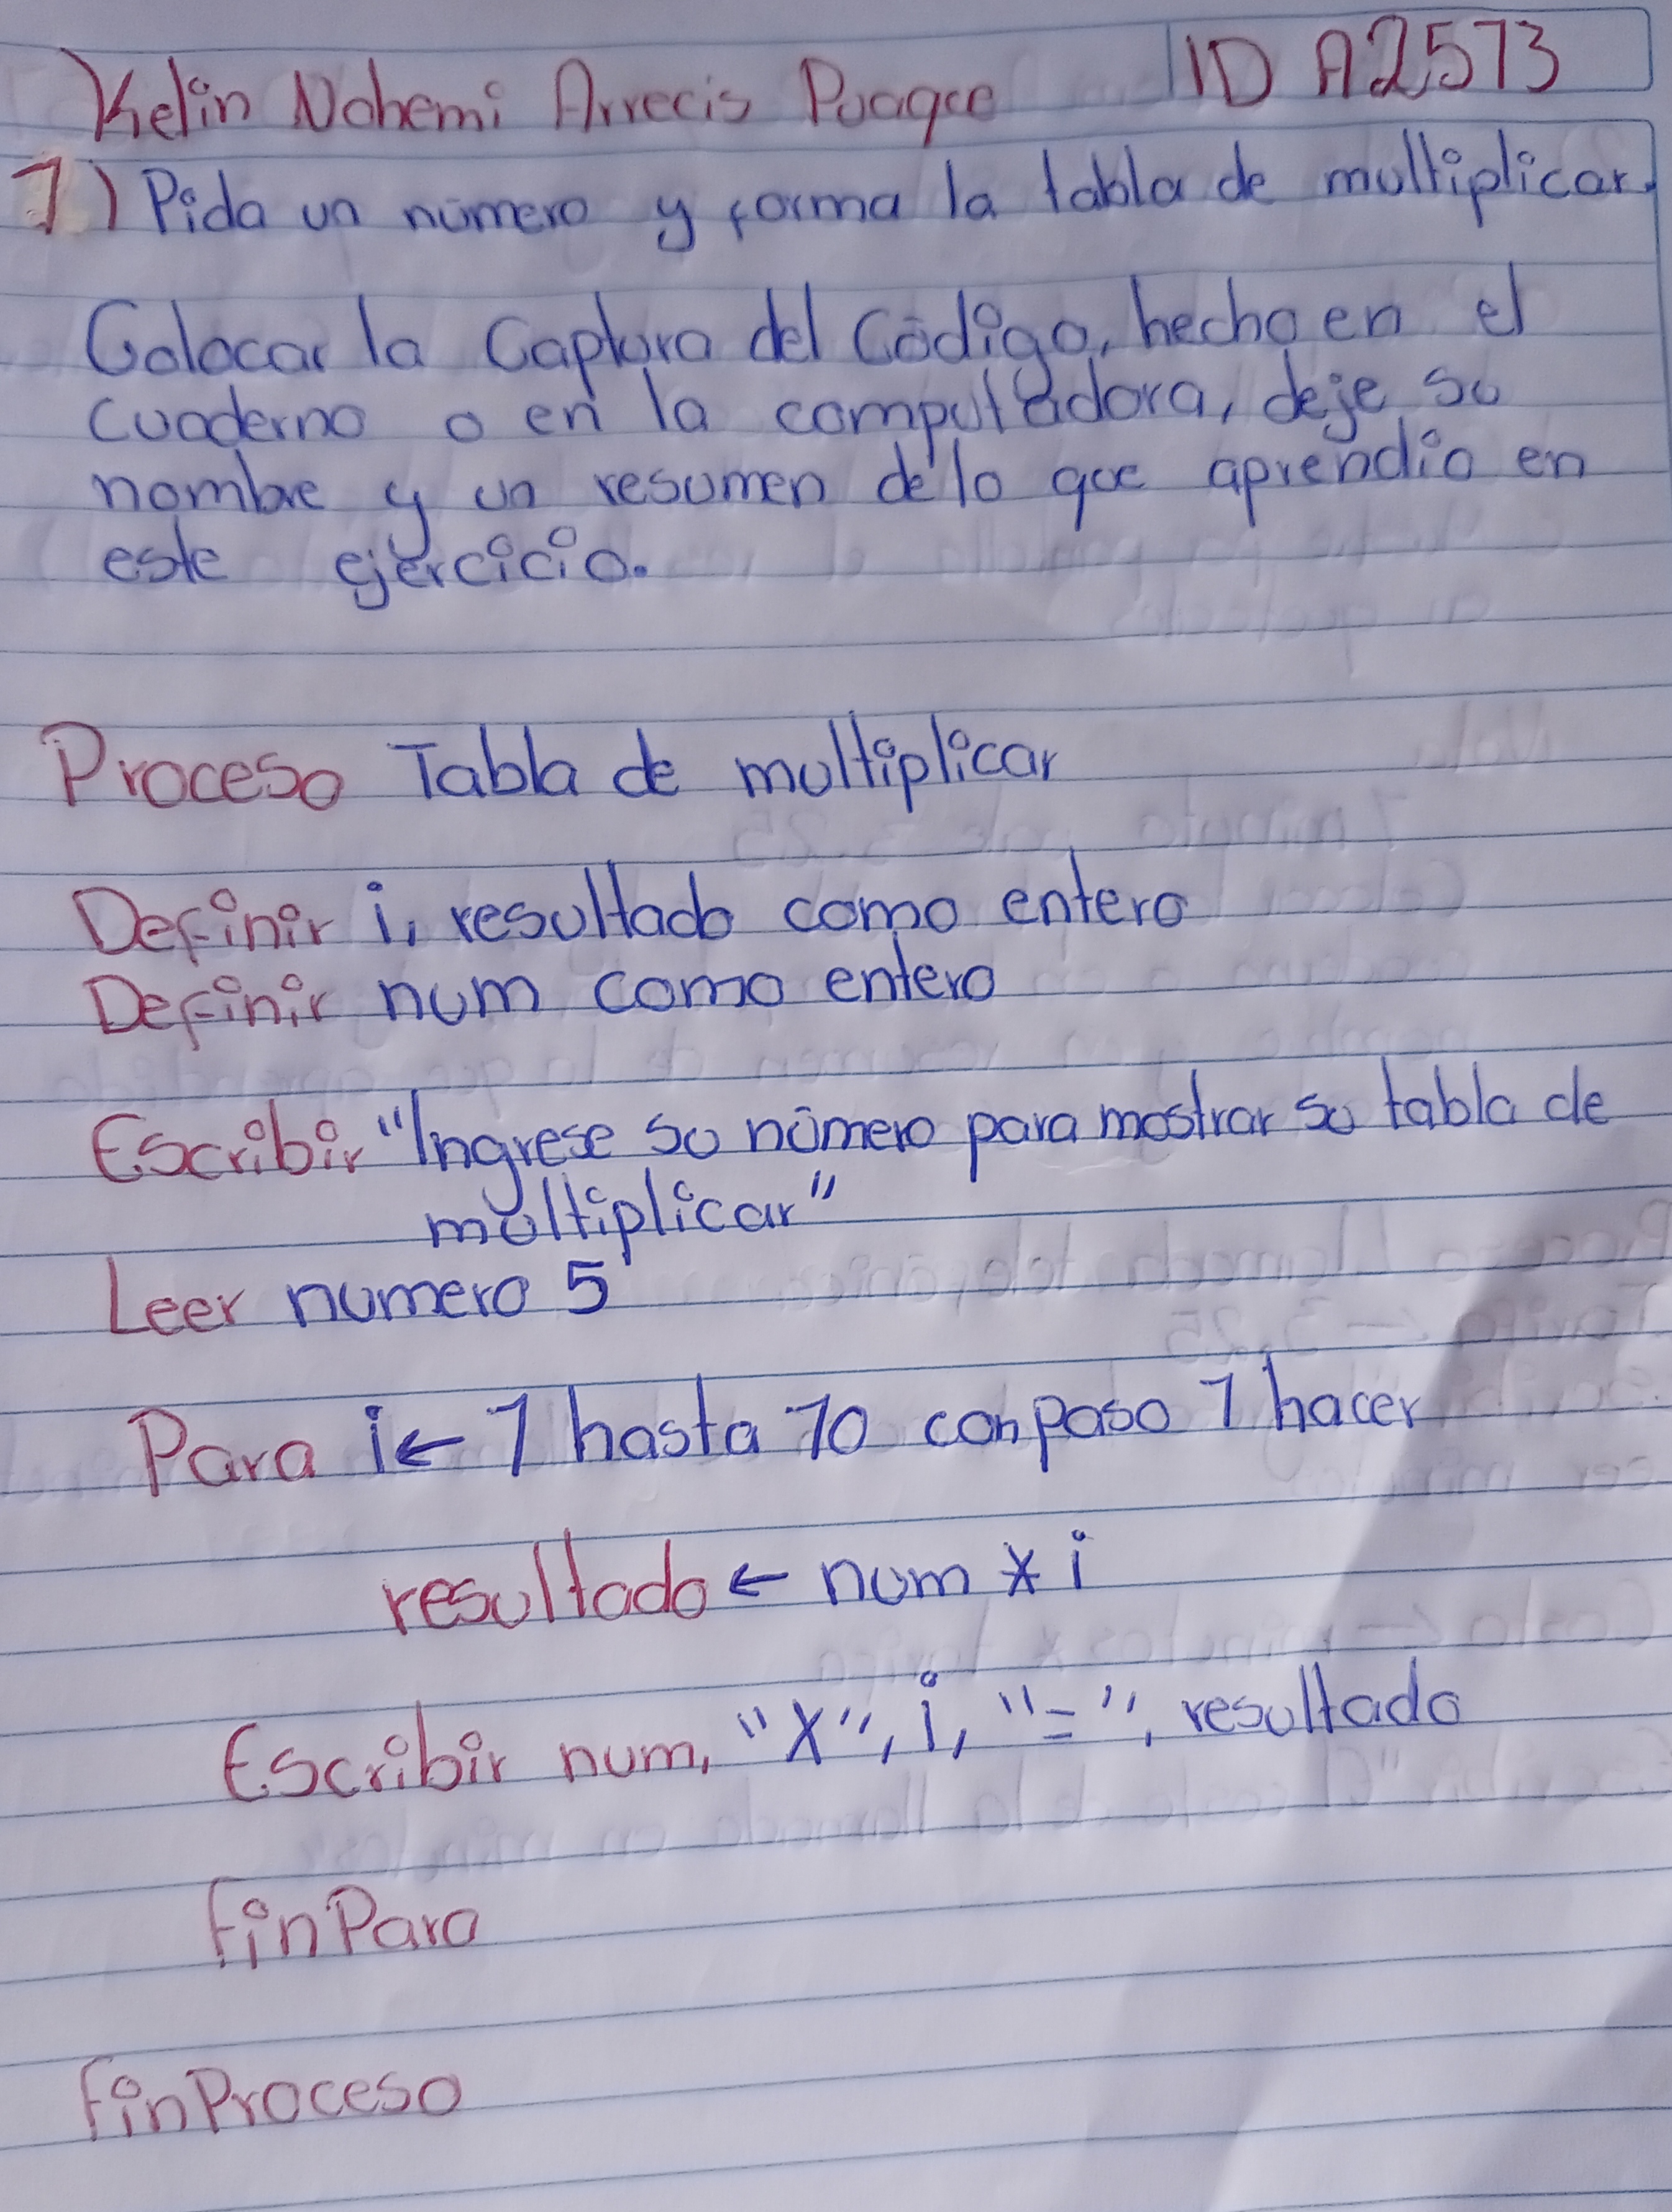 Kelin Nohemi Arrecis Puaque ID A2573
1) Pida un número y forma la tabla de multiplicar.
Colocar la Captura del Código, hecho en el
cuaderno o en la computadora, deje su
nombre y un resumen de lo que aprendio en
este ejercicio.
Proceso Tabla de multiplicar
Definir i, resultado como entero
Definir num como entero
Escribir "Ingrese su número para mostrar su tabla de
multiplicar"
Leer numero 5
Para i ← 1 hasta 10 con paso 1 hacer
resultado ← num * i
Escribir num, "X", i, "=", resultado
FinPara
FinProceso